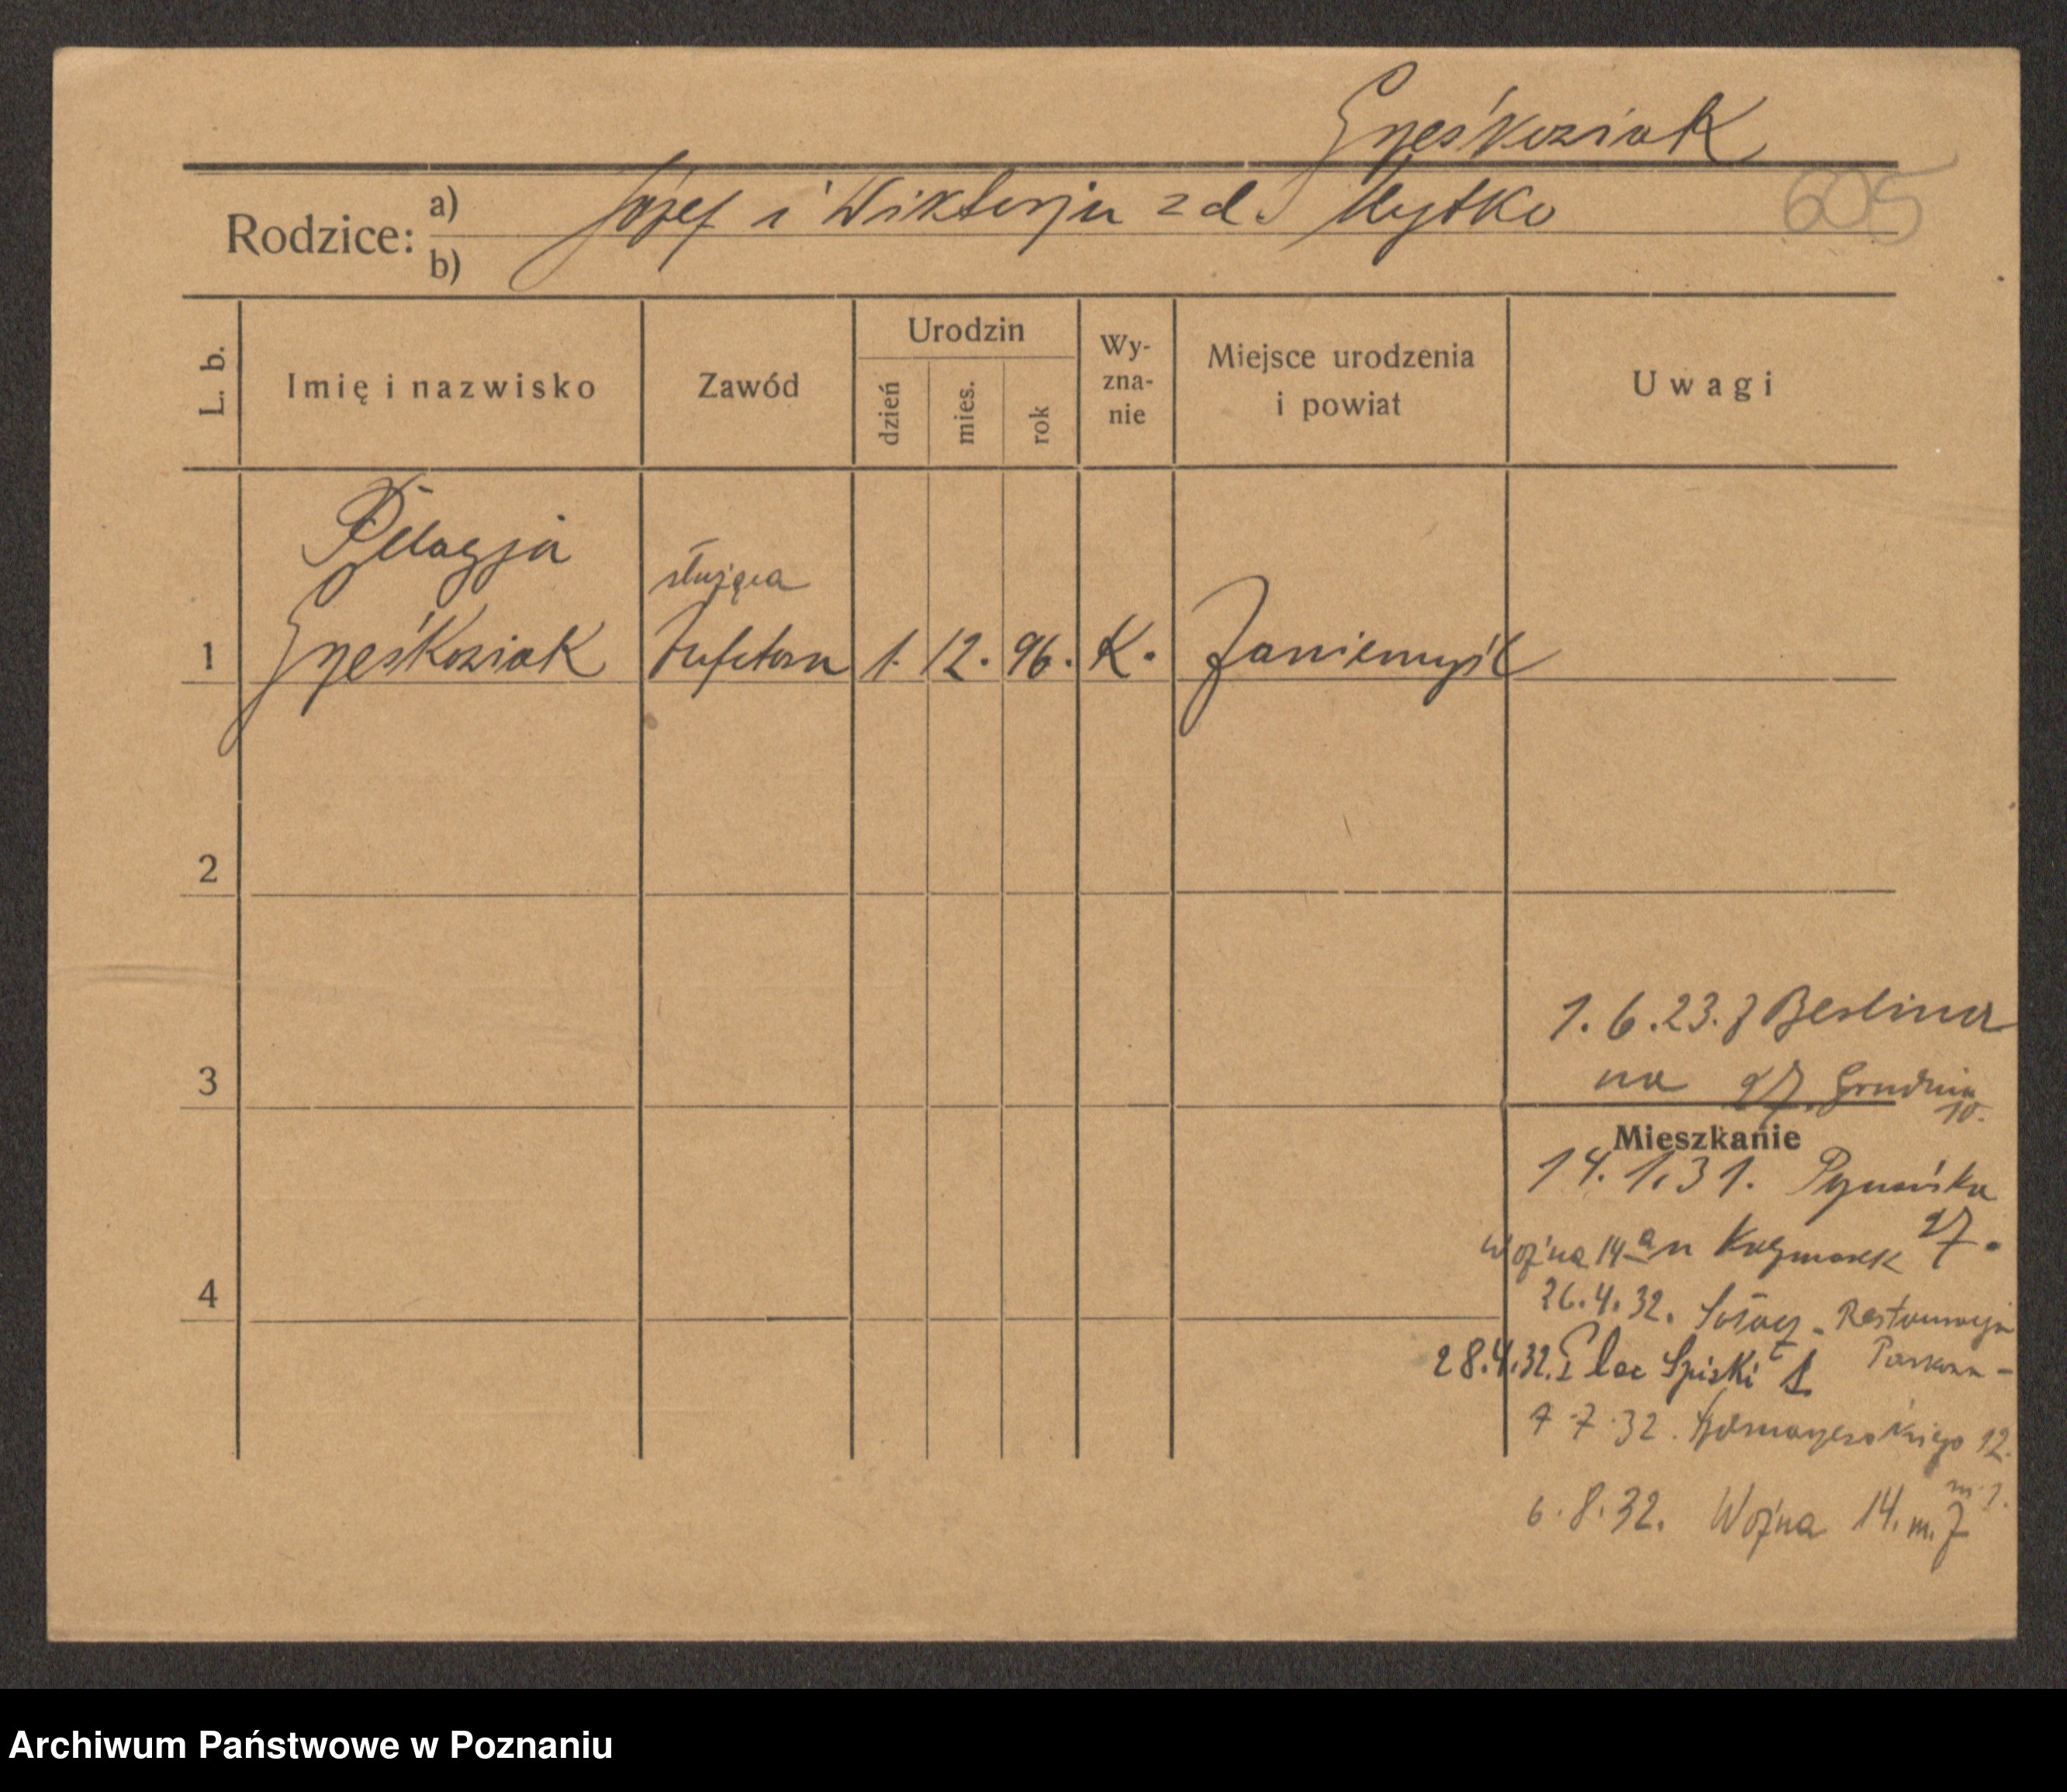 Grześkowiak
Rodzice: a) Józef i Wiktorja z d. Mytko
605
b)
L. b.
Imię i nazwisko
Zawód
Urodzin
dzień
mies.
rok
Wy-
zna-
nie
Miejsce urodzenia
i powiat
Uwagi
Pelagja
służąca
1 Grześkowiak bufetowa 1. 12. 96. K. Zaniemyśl
2
3
4
1.6.23. z Berlina
na 27 Grudnia
10.
Mieszkanie
14.1.31. Rynarska
27.
Woźna 14 n Kaczmarek
26.4.32. Sołacz - Restauracja
Parkowa -
28.4.32. Plac Spiski 1
7.7.32. 12.
m
6.8.32. Woźna 14. m. 7
Archiwum Państwowe w Poznaniu